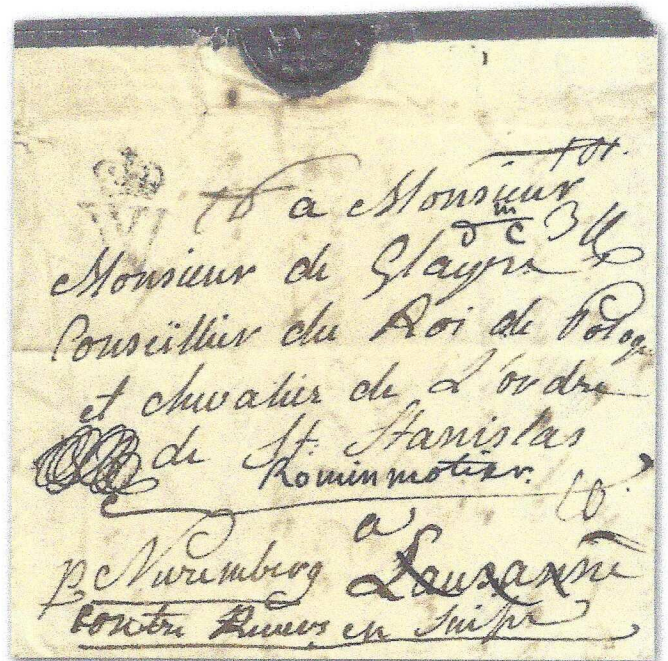 W
a Monsieur
Monsieur de Glayre
Conseillier du Roi de Pologne
et chevalier de L'ordre
de St. Stanislas
Rominmotier.
a
p Nuremberg Lausanne
contre en Suisse